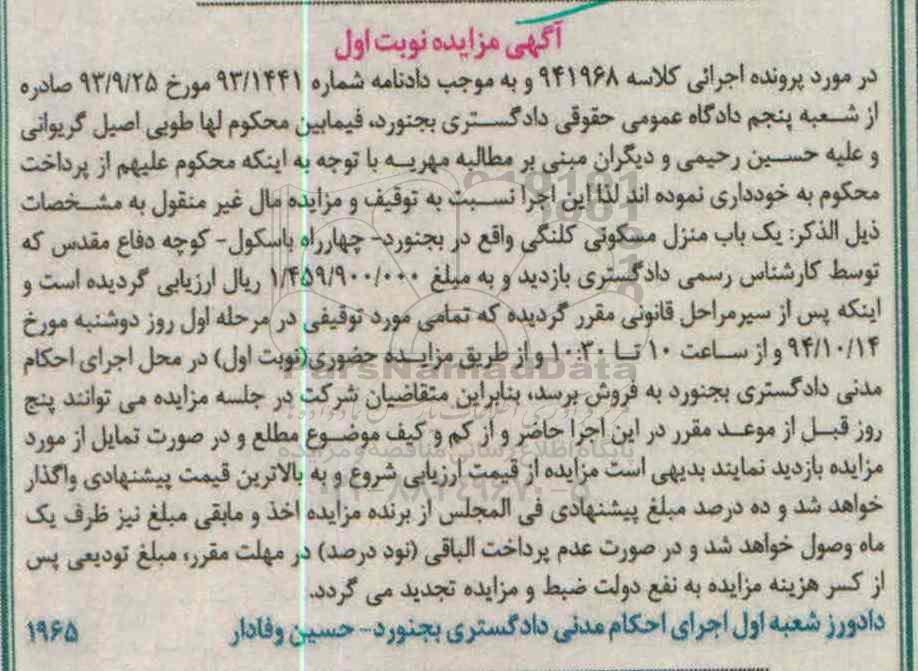 آگهی مزایده نوبت اول
در مورد پرونده اجرائی کلاسه ۹۴۱۹۶۸ و به موجب دادنامه شماره ۹۳/۱۴۴۱ مورخ ۹۳/۹/۲۵ صادره
از شعبه پنجم دادگاه عمومی حقوقی دادگستری بجنورد، فیمابین محکوم لها طوبی اصیل گریوانی
و علیه حسین رحیمی و دیگران مبنی بر مطالبه مهریه با توجه به اینکه محکوم علیهم از پرداخت
محکوم به خودداری نموده اند لذا این اجرا نسبت به توقیف و مزایده مال غیر منقول به مشخصات
ذیل الذکر: یک باب منزل مسکونی کلنگی واقع در بجنورد- چهارراه باسکول- کوچه دفاع مقدس که
توسط کارشناس رسمی دادگستری بازدید و به مبلغ ۱/۴۵۹/۹۰۰/۰۰۰ ریال ارزیابی گردیده است و
اینکه پس از سیرمراحل قانونی مقرر گردیده که تمامی مورد توقیفی در مرحله اول روز دوشنبه مورخ
۹۴/۱۰/۱۴ و از ساعت ۱۰ تا ۱۰:۳۰ و از طریق مزایده حضوری(نوبت اول) در محل اجرای احکام
مدنی دادگستری بجنورد به فروش برسد، بنابراین متقاضیان شرکت در جلسه مزایده می توانند پنج
روز قبل از موعد مقرر در این اجرا حاضر و از کم و کیف موضوع مطلع و در صورت تمایل از مورد
مزایده بازدید نمایند بدیهی است مزایده از قیمت ارزیابی شروع و به بالاترین قیمت پیشنهادی واگذار
خواهد شد و ده درصد مبلغ پیشنهادی فی المجلس از برنده مزایده اخذ و مابقی مبلغ نیز ظرف یک
ماه وصول خواهد شد و در صورت عدم پرداخت الباقی (نود درصد) در مهلت مقرر، مبلغ تودیعی پس
از کسر هزینه مزایده به نفع دولت ضبط و مزایده تجدید می گردد.
دادورز شعبه اول اجرای احکام مدنی دادگستری بجنورد- حسین وفادار ۱۹۶۵
ParsNamadData
پایگاه اطلاع رسانی مناقصه و مزایده